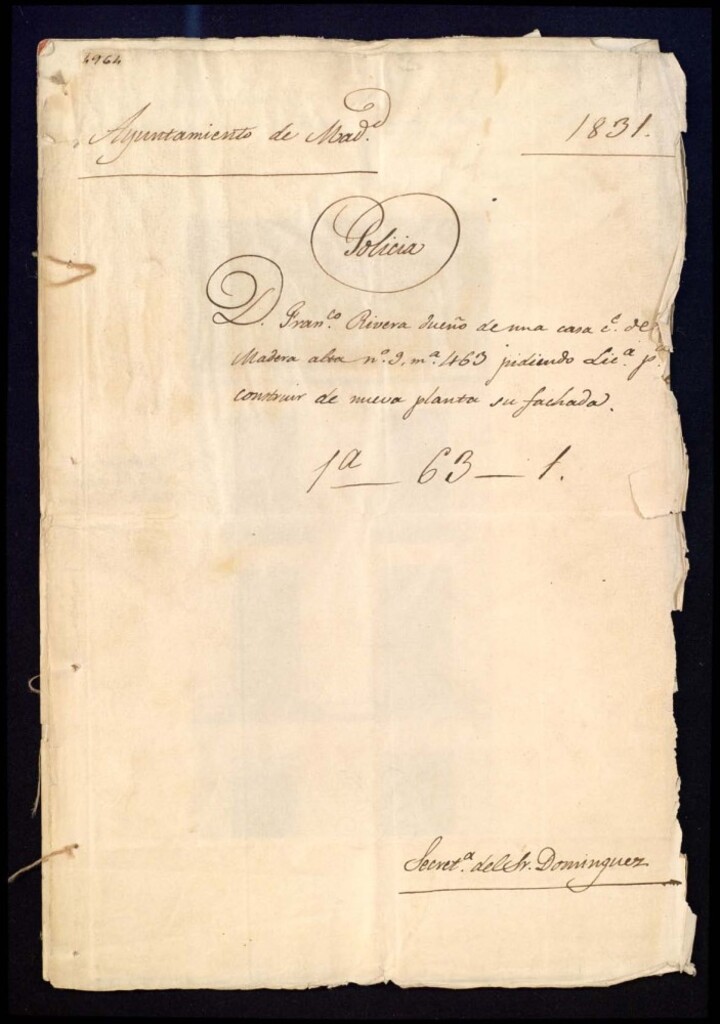 4964
Ayuntamiento de Mad.d
1831.
Policia
D. Fran.co Rivera dueño de una casa c.e de
Madera alta n.o 9, m.a 463 pidiendo Lic.a p.a
construir de nueva planta su fachada.
1a — 63 — 1.
Secret.a del Sr. Dominguez